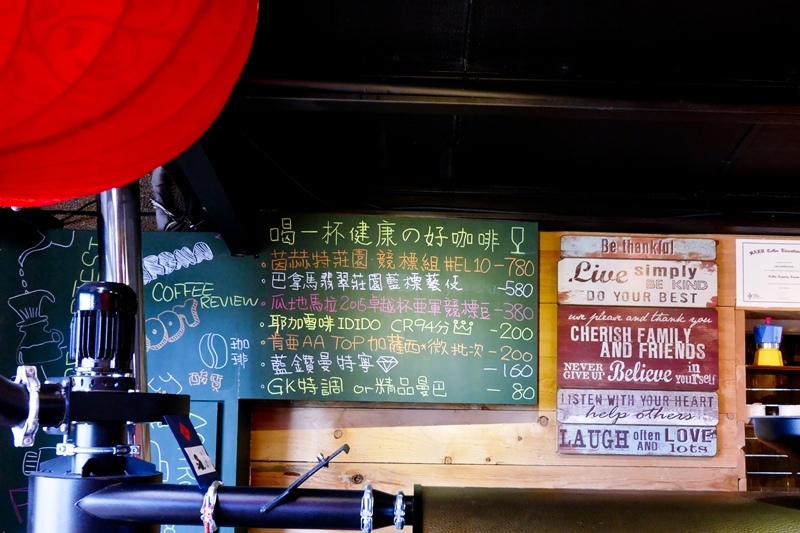 喝一杯健康の好咖啡
茵赫特莊園·競標組#EL10-780
巴拿馬翡翠莊園藍標藝伎-580
瓜地馬拉2015卓越杯亞軍競標豆-380
耶加雪啡IDIDO CR94分-200
肯亞AA TOP加薩西*微批次-200
藍鑽曼特寧-160
GK特調 or精品曼巴-80
COFFEE
REVIEW
咖啡
酸質
Be thankful
Live simply
BE KIND
DO YOUR BEST
say please and thank you
CHERISH FAMILY
AND FRIENDS
NEVER GIVE UP Believe in yourself
LISTEN WITH YOUR HEART
help others
LAUGH often AND LOVE lots